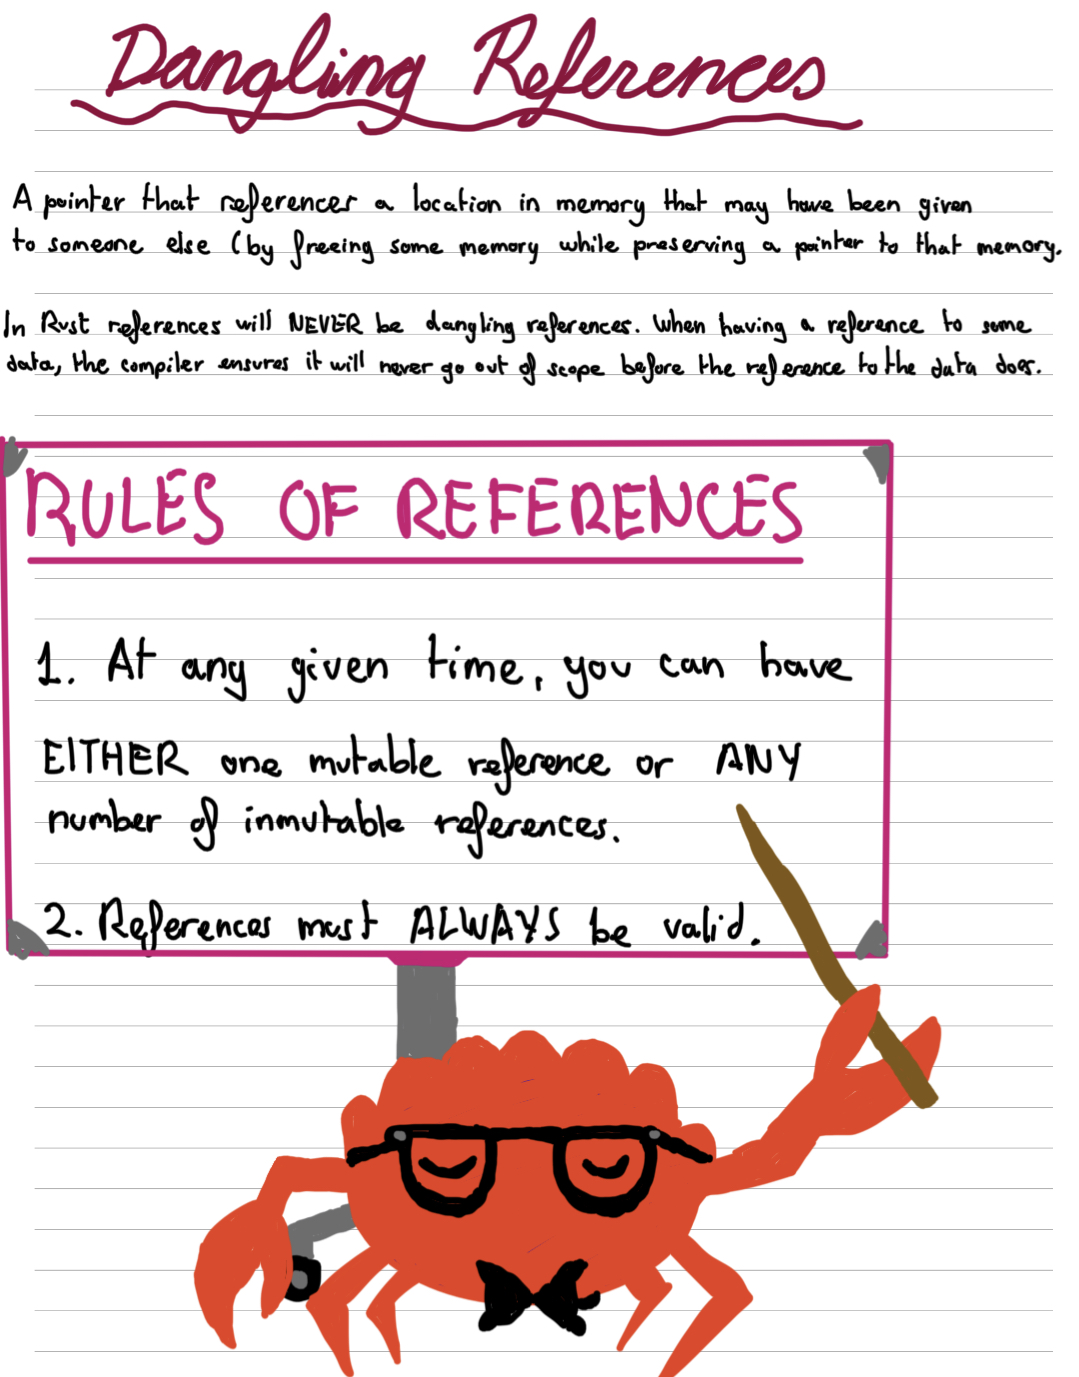 Dangling References
A pointer that references a location in memory that may have been given
to someone else (by freeing some memory while preserving a pointer to that memory.
In Rust references will NEVER be dangling references. When having a reference to some
data, the compiler ensures it will never go out of scope before the reference to the data does.
RULES OF REFERENCES
1. At any given time, you can have
EITHER one mutable reference or ANY
number of inmutable references.
2. References must ALWAYS be valid.